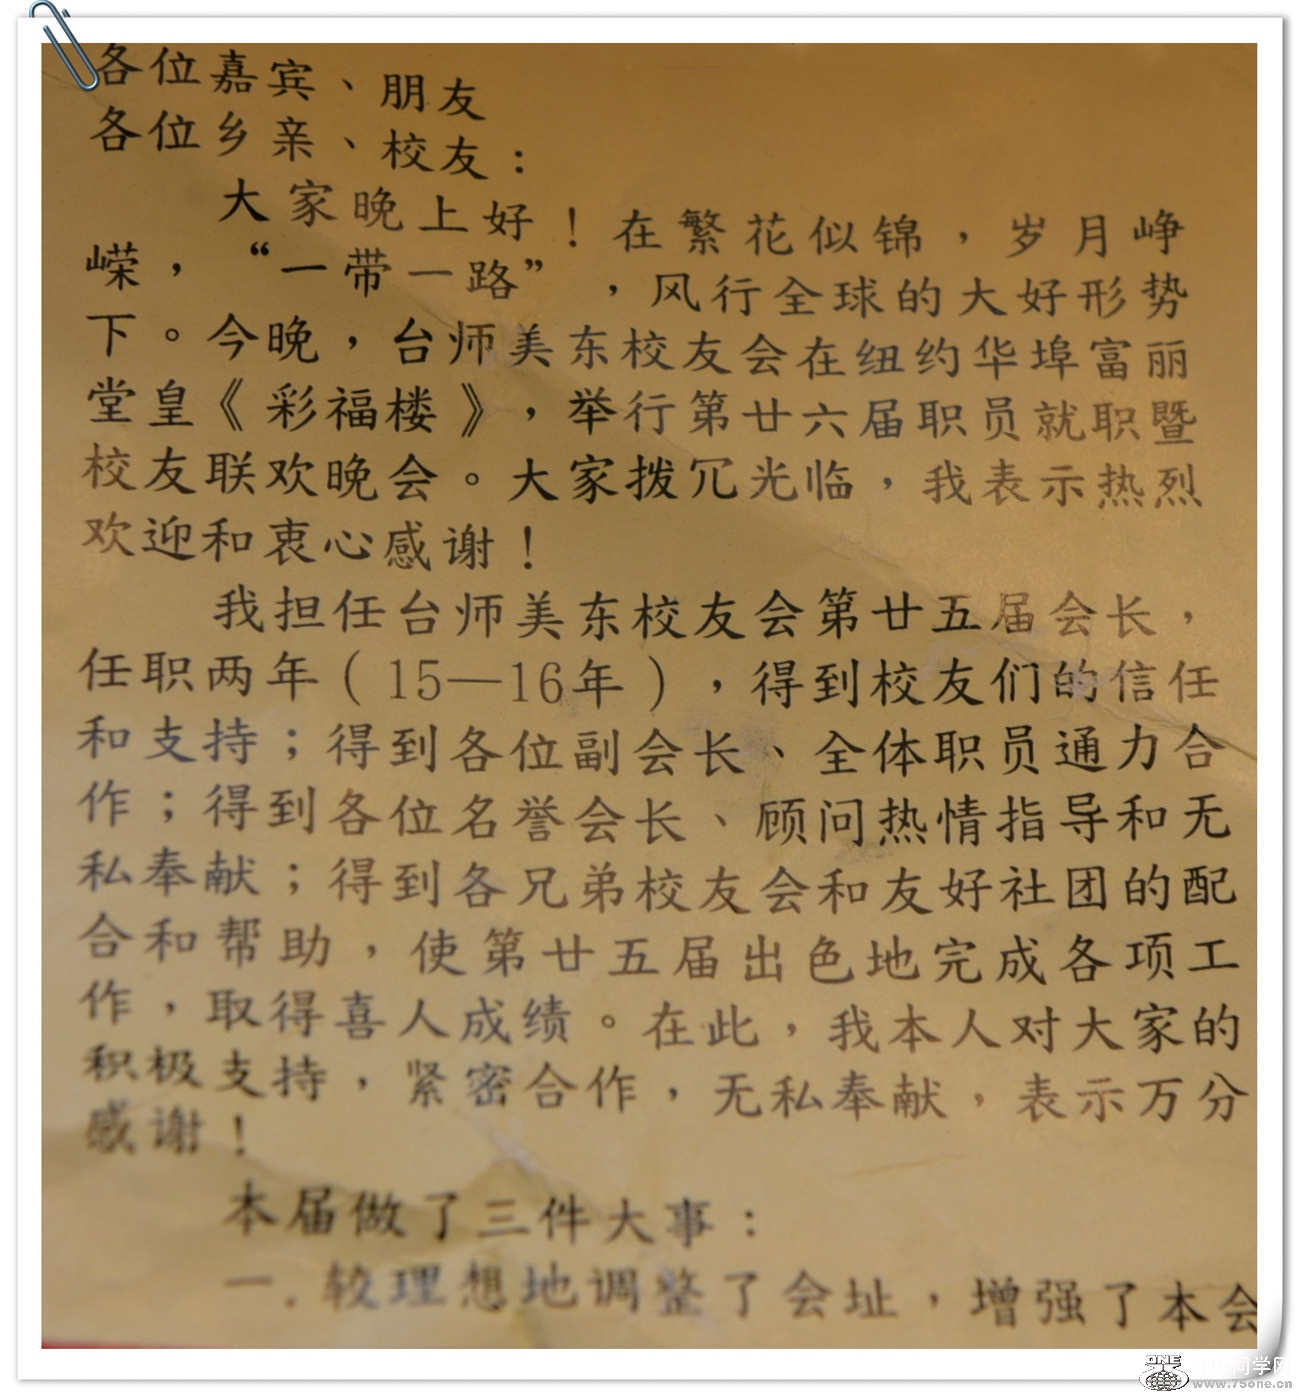 各位嘉宾、朋友
各位乡亲、校友：
大家晚上好！在繁花似锦，岁月峥
嵘，“一带一路”，风行全球的大好形势
下。今晚，台师美东校友会在纽约华埠富丽
堂皇《彩福楼》，举行第廿六届职员就职暨
校友联欢晚会。大家拨冗光临，我表示热烈
欢迎和衷心感谢！
我担任台师美东校友会第廿五届会长，
任职两年（15—16年），得到校友们的信任
和支持；得到各位副会长、全体职员通力合
作；得到各位名誉会长、顾问热情指导和无
私奉献；得到各兄弟校友会和友好社团的配
合和帮助，使第廿五届出色地完成各项工
作，取得喜人成绩。在此，我本人对大家的
积极支持，紧密合作，无私奉献，表示万分
感谢！
本届做了三件大事：
一.较理想地调整了会址，增强了本会
ONE
同学网
www.75one.cn